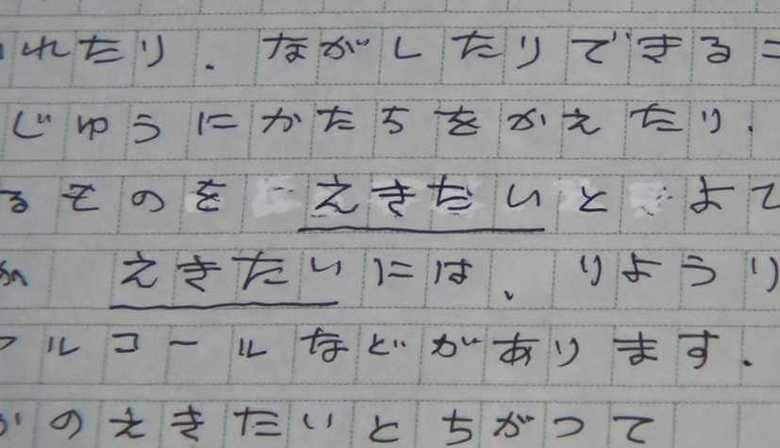 れたり．ながしたりできる
じゆうにかたちをかえたり．
るそのを えきたいと よて
えきたいには、りようり
ルコールなどがあります．
のえきたいとちがって